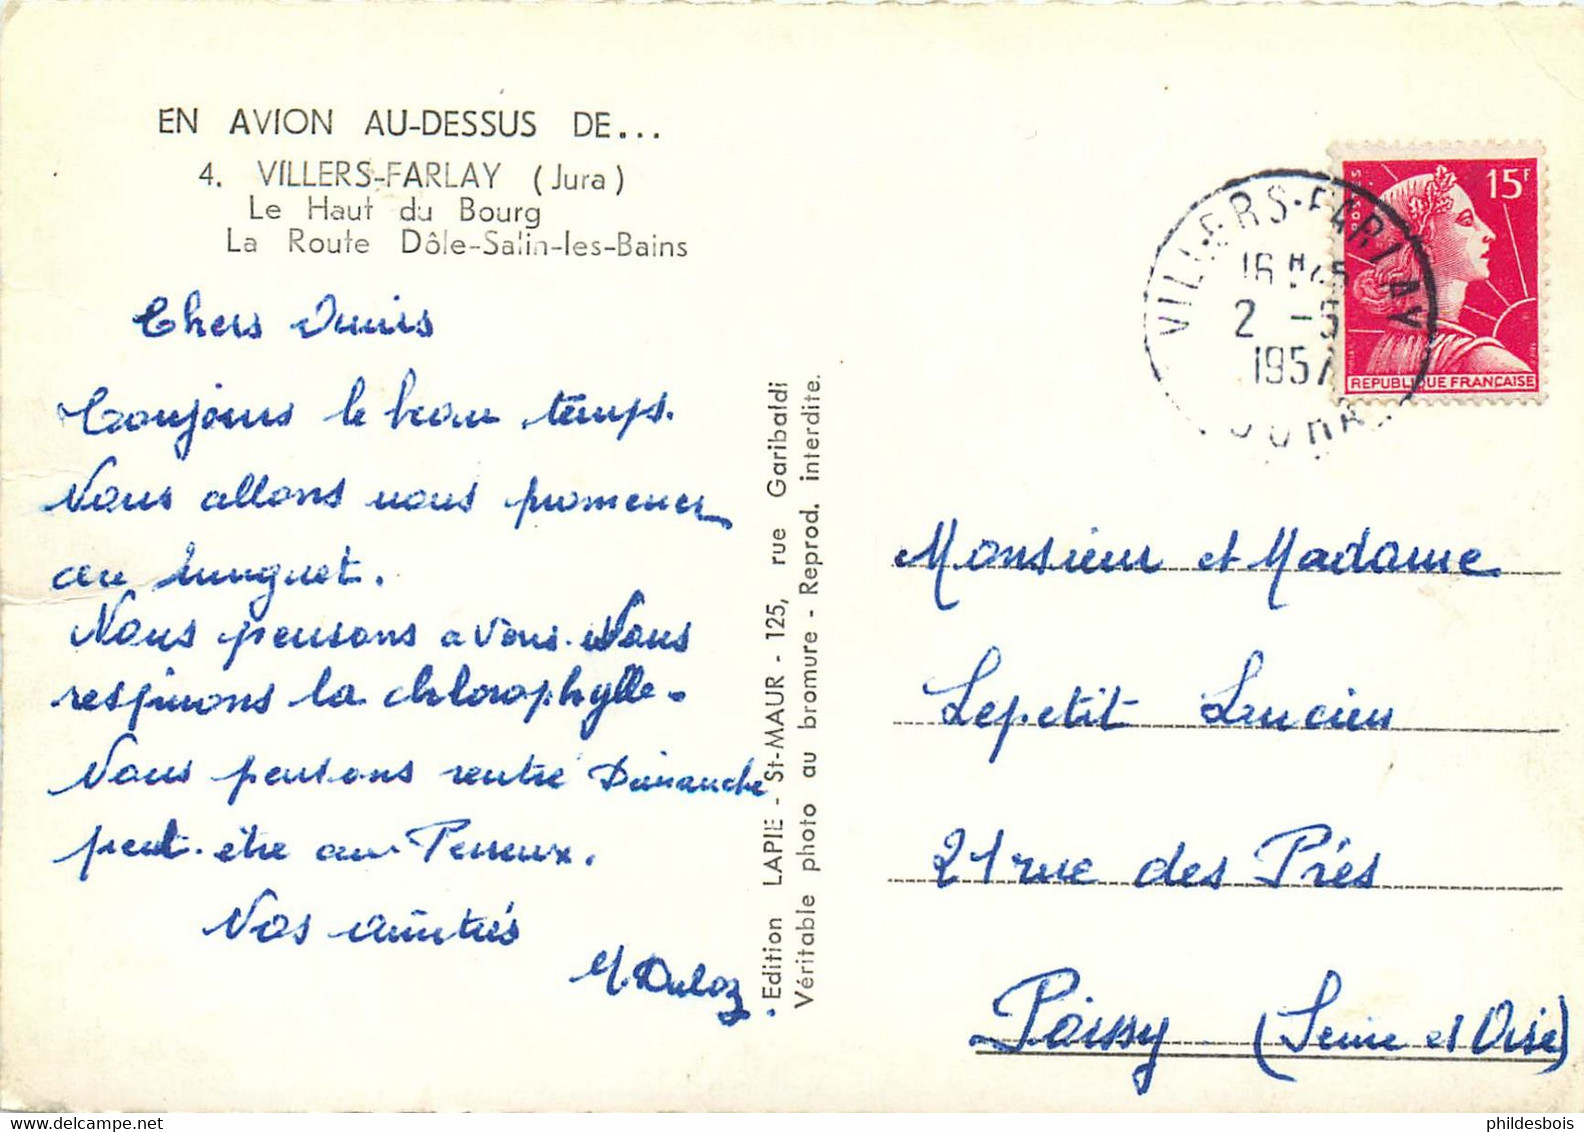 EN AVION AU-DESSUS DE...
4. VILLERS-FARLAY (Jura)
Le Haut du Bourg
La Route Dôle-Salin-les-Bains
Chers Amis
Toujours le beau temps.
Nous allons nous promener
au muguet.
Nous pensons a vous. Nous
respirons la chlorophylle.
Nous pensons rentré Dimanche
peut-être au Perreux.
Nos amitiés
Edition LAPIE - St-MAUR - 125, rue Garibaldi
Véritable photo au bromure - Reprod. interdite.
POSTES
15F
REPUBLIQUE FRANÇAISE
VILLERS-FARLAY
16H45
2 -5
1957
JURA
Monsieur et Madame
Lepetit Lucien
21 rue des Prés
Poissy (Seine et Oise)
phildesbois